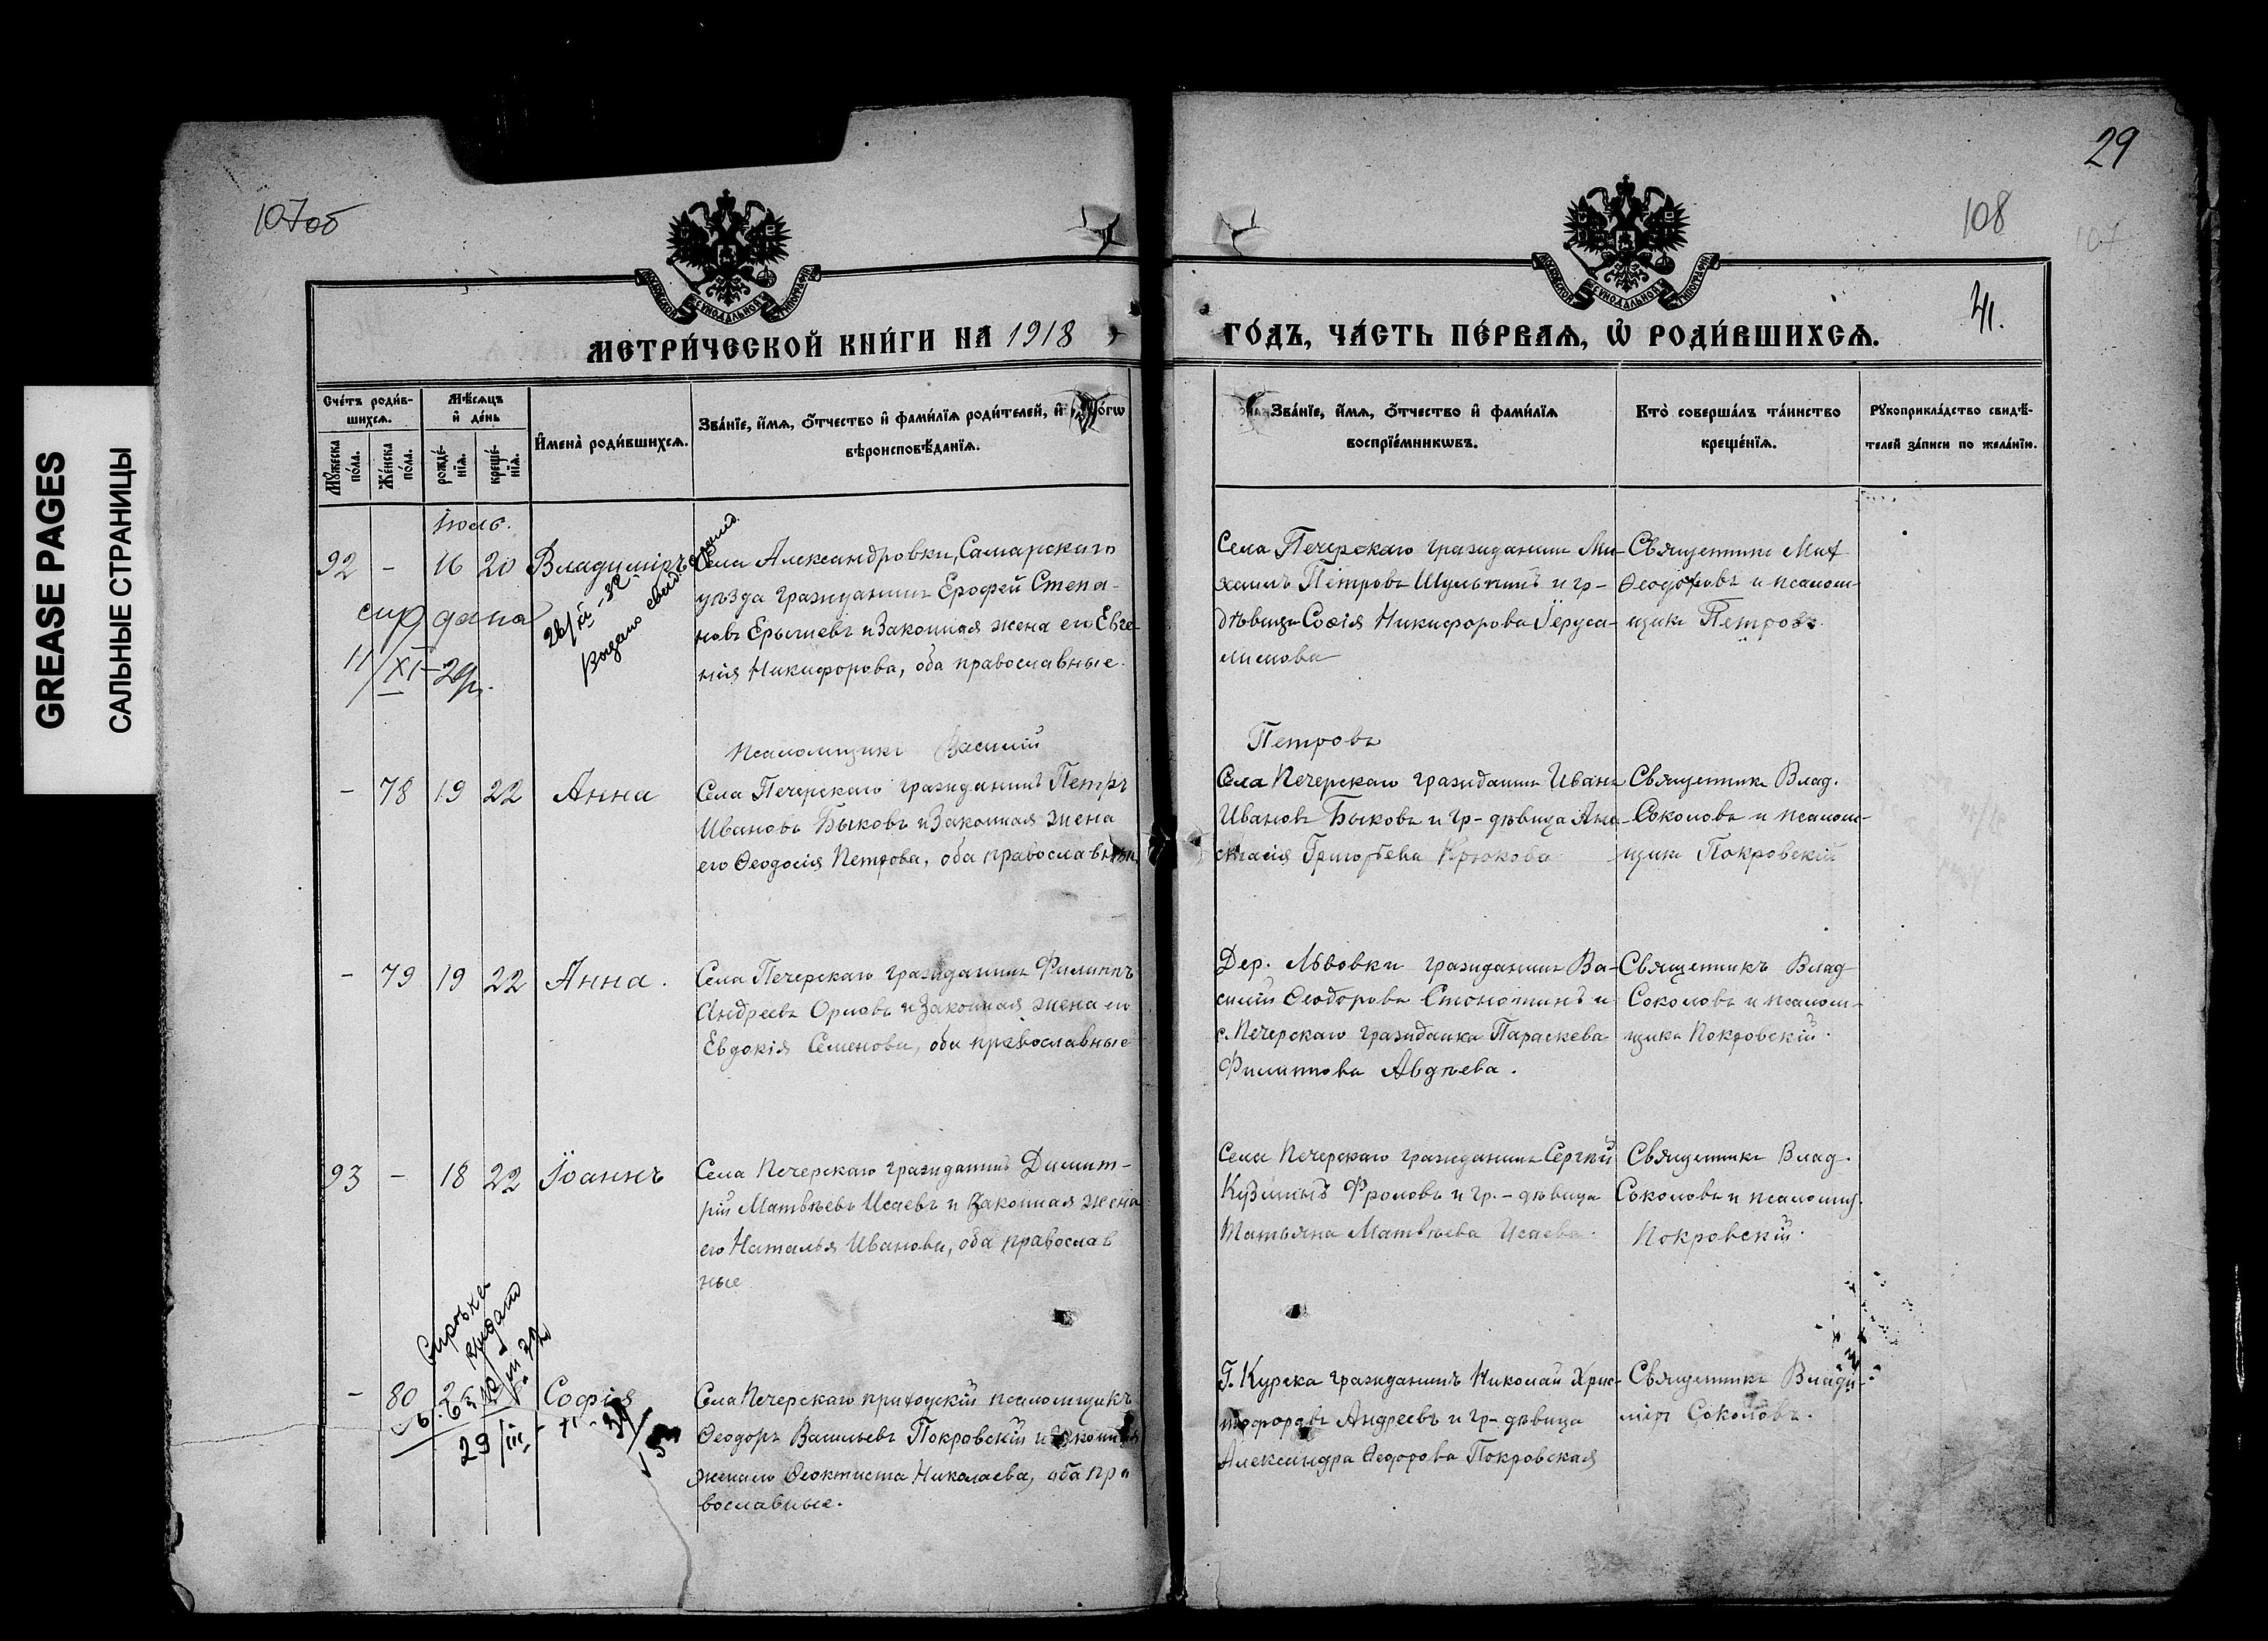 GREASE PAGES
САЛЬНЫЕ СТРАНИЦЫ
107об
29
108
107
МЕТРИ́ЧЕСКОЙ КНИ́ГИ НА 1918
ГО́ДЪ, ЧА́СТЬ ПЕ́РВАѦ, Ѡ҆ РОДИ́ВШИХСѦ.
Сче́тъ роди́в-
шихсѧ.
Мѣ́сѧцъ
и҆ де́нь
Мꙋ́жеска
по́ла.
Же́нска
по́ла.
рожде́-
нїѧ.
креще́-
нїѧ.
И҆мена̀ роди́вшихсѧ.
Зва́нїе, и҆́мѧ, ѻ҆́тчество и҆ фами́лїѧ роди́телей, и҆
вѣроисповѣ́данїѧ.
Зва́нїе, и҆́мѧ, ѻ҆́тчество и҆ фами́лїѧ
воспрїе́мникѡвъ.
Кто̀ соверша́лъ та́инство
креще́нїѧ.
Рꙋкоприкла́дство свидѣ́-
телей за́писи по жела́нїю.
Іюль.
92 - 16 20 Владиміръ
Села Александровки, Самарскаго
уѣзда гражданинъ Ерофей Степа-
новъ Ерышевъ и законная жена его Евге-
нія Никифорова, оба православные.
Села Печерскаго гражданин Ми-
хаилъ Петровъ Шулькинъ и гр-
дѣвица Софія Никифорова Іеруса-
лимова
Священникъ Мих
Ѳеодоровъ и псалом-
щикъ Петровъ
спр дана
11/XI-29г.
Выдано свид.
Псаломщикъ Василій Петровъ
- 78 19 22 Анна
Села Печерскаго гражданинъ Петръ
Ивановъ Быковъ и законная жена
его Ѳеодосія Петрова, оба православные
Села Печерскаго гражданин Иванъ
Ивановъ Быковъ и гр-дѣвица Ана-
стасія Григорьева Крюкова
Священникъ Влад.
Соколовъ и псалом-
щикъ Покровскій
- 79 19 22 Анна.
Села Печерскаго гражданинъ Филиппъ
Андреевъ Орловъ и законная жена его
Евдокія Семенова, оба православные
Дер. Львовки гражданинъ Ва-
силій Ѳеодоровъ и
с. Печерскаго гражданка Параскева
Филиппова Авдѣева.
Священникъ Влад
Соколовъ и псалом-
щикъ Покровскій.
93 - 18 22 Іоаннъ
Села Печерскаго гражданинъ Димит-
рій Матвѣевъ Исаевъ и законная жена
его Наталья Иванова, оба православ
ные
Села Печерскаго гражданинъ Сергѣй
Кузминъ Фроловъ и гр.-дѣвица
Татьяна Матвѣева Исаева.
Священникъ Влад.
Соколовъ и псаломщ.
Покровскій.
Справка
выдана
- 80 Софія
29/III-
Села Печерскаго приходскій псаломщикъ
Ѳеодоръ Васильевъ Покровскій и законная
жена его Ѳеоктиста Николаева, оба пра
вославные.
Г. Курска гражданинъ Николай Хрис-
тофоровъ Андреевъ и гр-дѣвица
Александра Ѳеодорова Покровская
Священникъ Влади-
міръ Соколовъ.